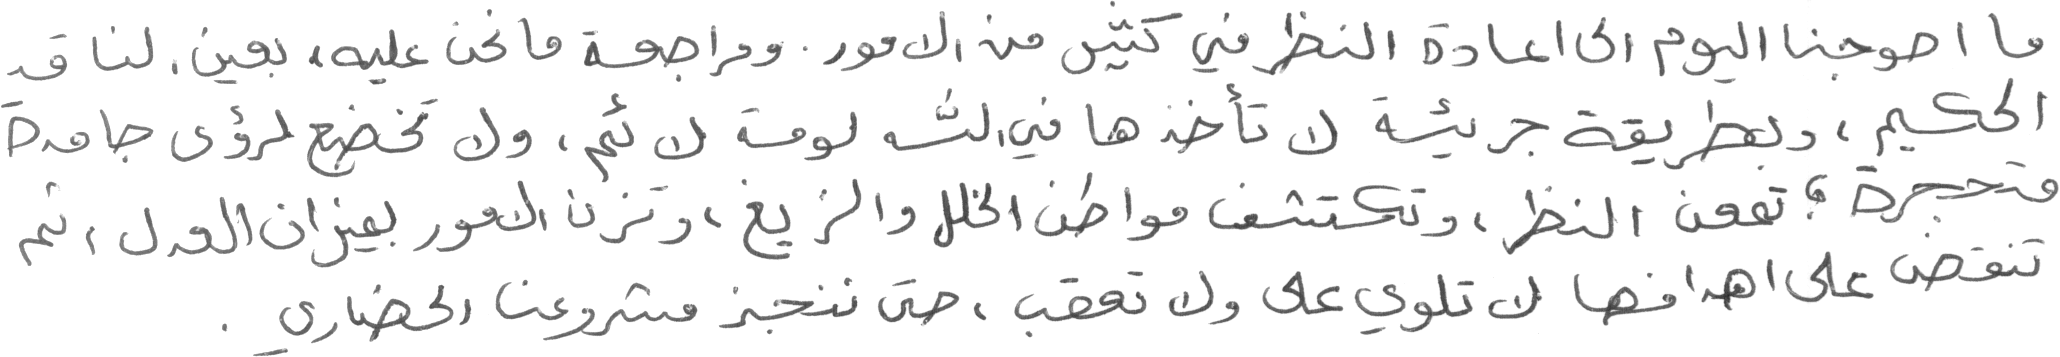 ما احوجنا اليوم الى اعادة النظر في كثير من الامور. ومراجعة ما نحن عليه، بعين. لنا قد
الحكيم، وبطريقة جريئة لا تأخذها في الله لومة لائم، ولا تخضع لرؤى جامدة
متحجرة؛ تمعن النظر، وتكتشف مواطن الخلل والزيغ، وتزن الامور بميزان العدل، ثم
تنقض على اهدافها لا تلوي على ولا تعقب، حتى ننجز مشروعنا الحضاري.